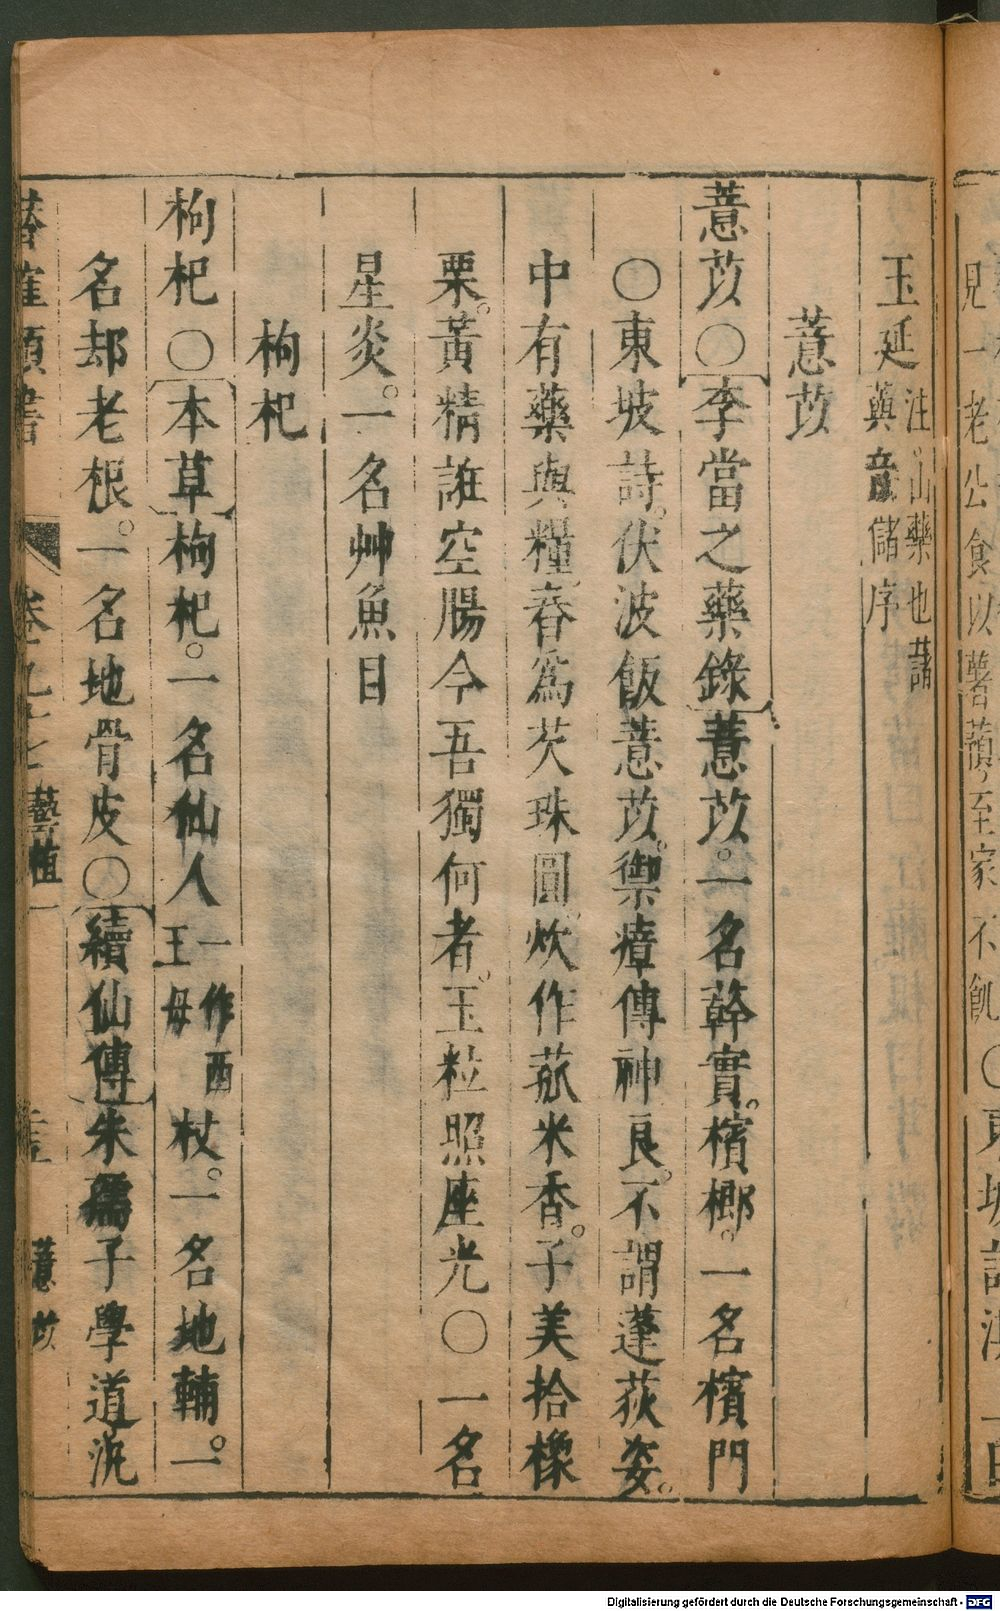 見一老公食以薯蕷至家不飢〇東坡詩淇一
玉延注山藥也諸
藇音儲序
薏苡
薏苡〇李當之藥錄薏苡。一名簳實。檳榔。一名檳門
〇東坡詩。伏波飯薏苡。禦瘴傳神良。不謂蓬荻姿。
中有藥與糧。舂爲芡珠圓。炊作菰米香。子美拾橡
栗。黃精誑空腸今吾獨何者。玉粒照座光〇一名
星炎。一名艸魚目
枸杞
枸杞〇本草枸杞。一名仙人一作西
王母杖。一名地輔。一
名却老根。一名地骨皮〇續仙傳朱孺子學道泥
卷九十七 藝植一 薏苡
Digitalisierung gefördert durch die Deutsche Forschungsgemeinschaft - DFG